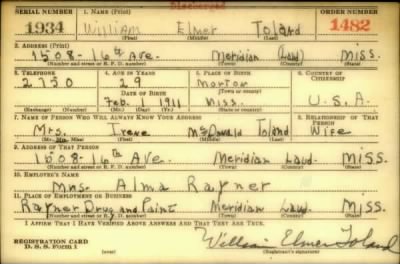 Discharged
SERIAL NUMBER 1. NAME (Print) ORDER NUMBER
1934 William Elmer Toland 1482
(First) (Middle) (Last)
2. ADDRESS (Print)
1508-16th Ave. Meridian (Laud) Miss.
(Number and street or R. F. D. number) (Town) (County) (State)
3. TELEPHONE 4. AGE IN YEARS 5. PLACE OF BIRTH 6. COUNTRY OF CITIZENSHIP
2750 29 Morton
DATE OF BIRTH (Town or county)
Feb. 1911 Miss. U.S.A.
(Exchange) (Number) (Mo.) (Day) (Yr.) (State or country)
7. NAME OF PERSON WHO WILL ALWAYS KNOW YOUR ADDRESS 8. RELATIONSHIP OF THAT PERSON
Mrs. Irene McDonald Toland Wife
(Mr., Mrs., Miss) (First) (Middle) (Last)
9. ADDRESS OF THAT PERSON
1508-16th Ave. Meridian Laud. Miss.
(Number and street or R. F. D. number) (Town) (County) (State)
10. EMPLOYER'S NAME
Mrs. Alma Rayner
11. PLACE OF EMPLOYMENT OR BUSINESS
Rayner Drug and Paint Meridian Laud. Miss.
(Number and street or R. F. D. number) (Town) (County) (State)
I AFFIRM THAT I HAVE VERIFIED ABOVE ANSWERS AND THAT THEY ARE TRUE.
REGISTRATION CARD
D. S. S. FORM 1
William Elmer Toland
(Registrant's signature)